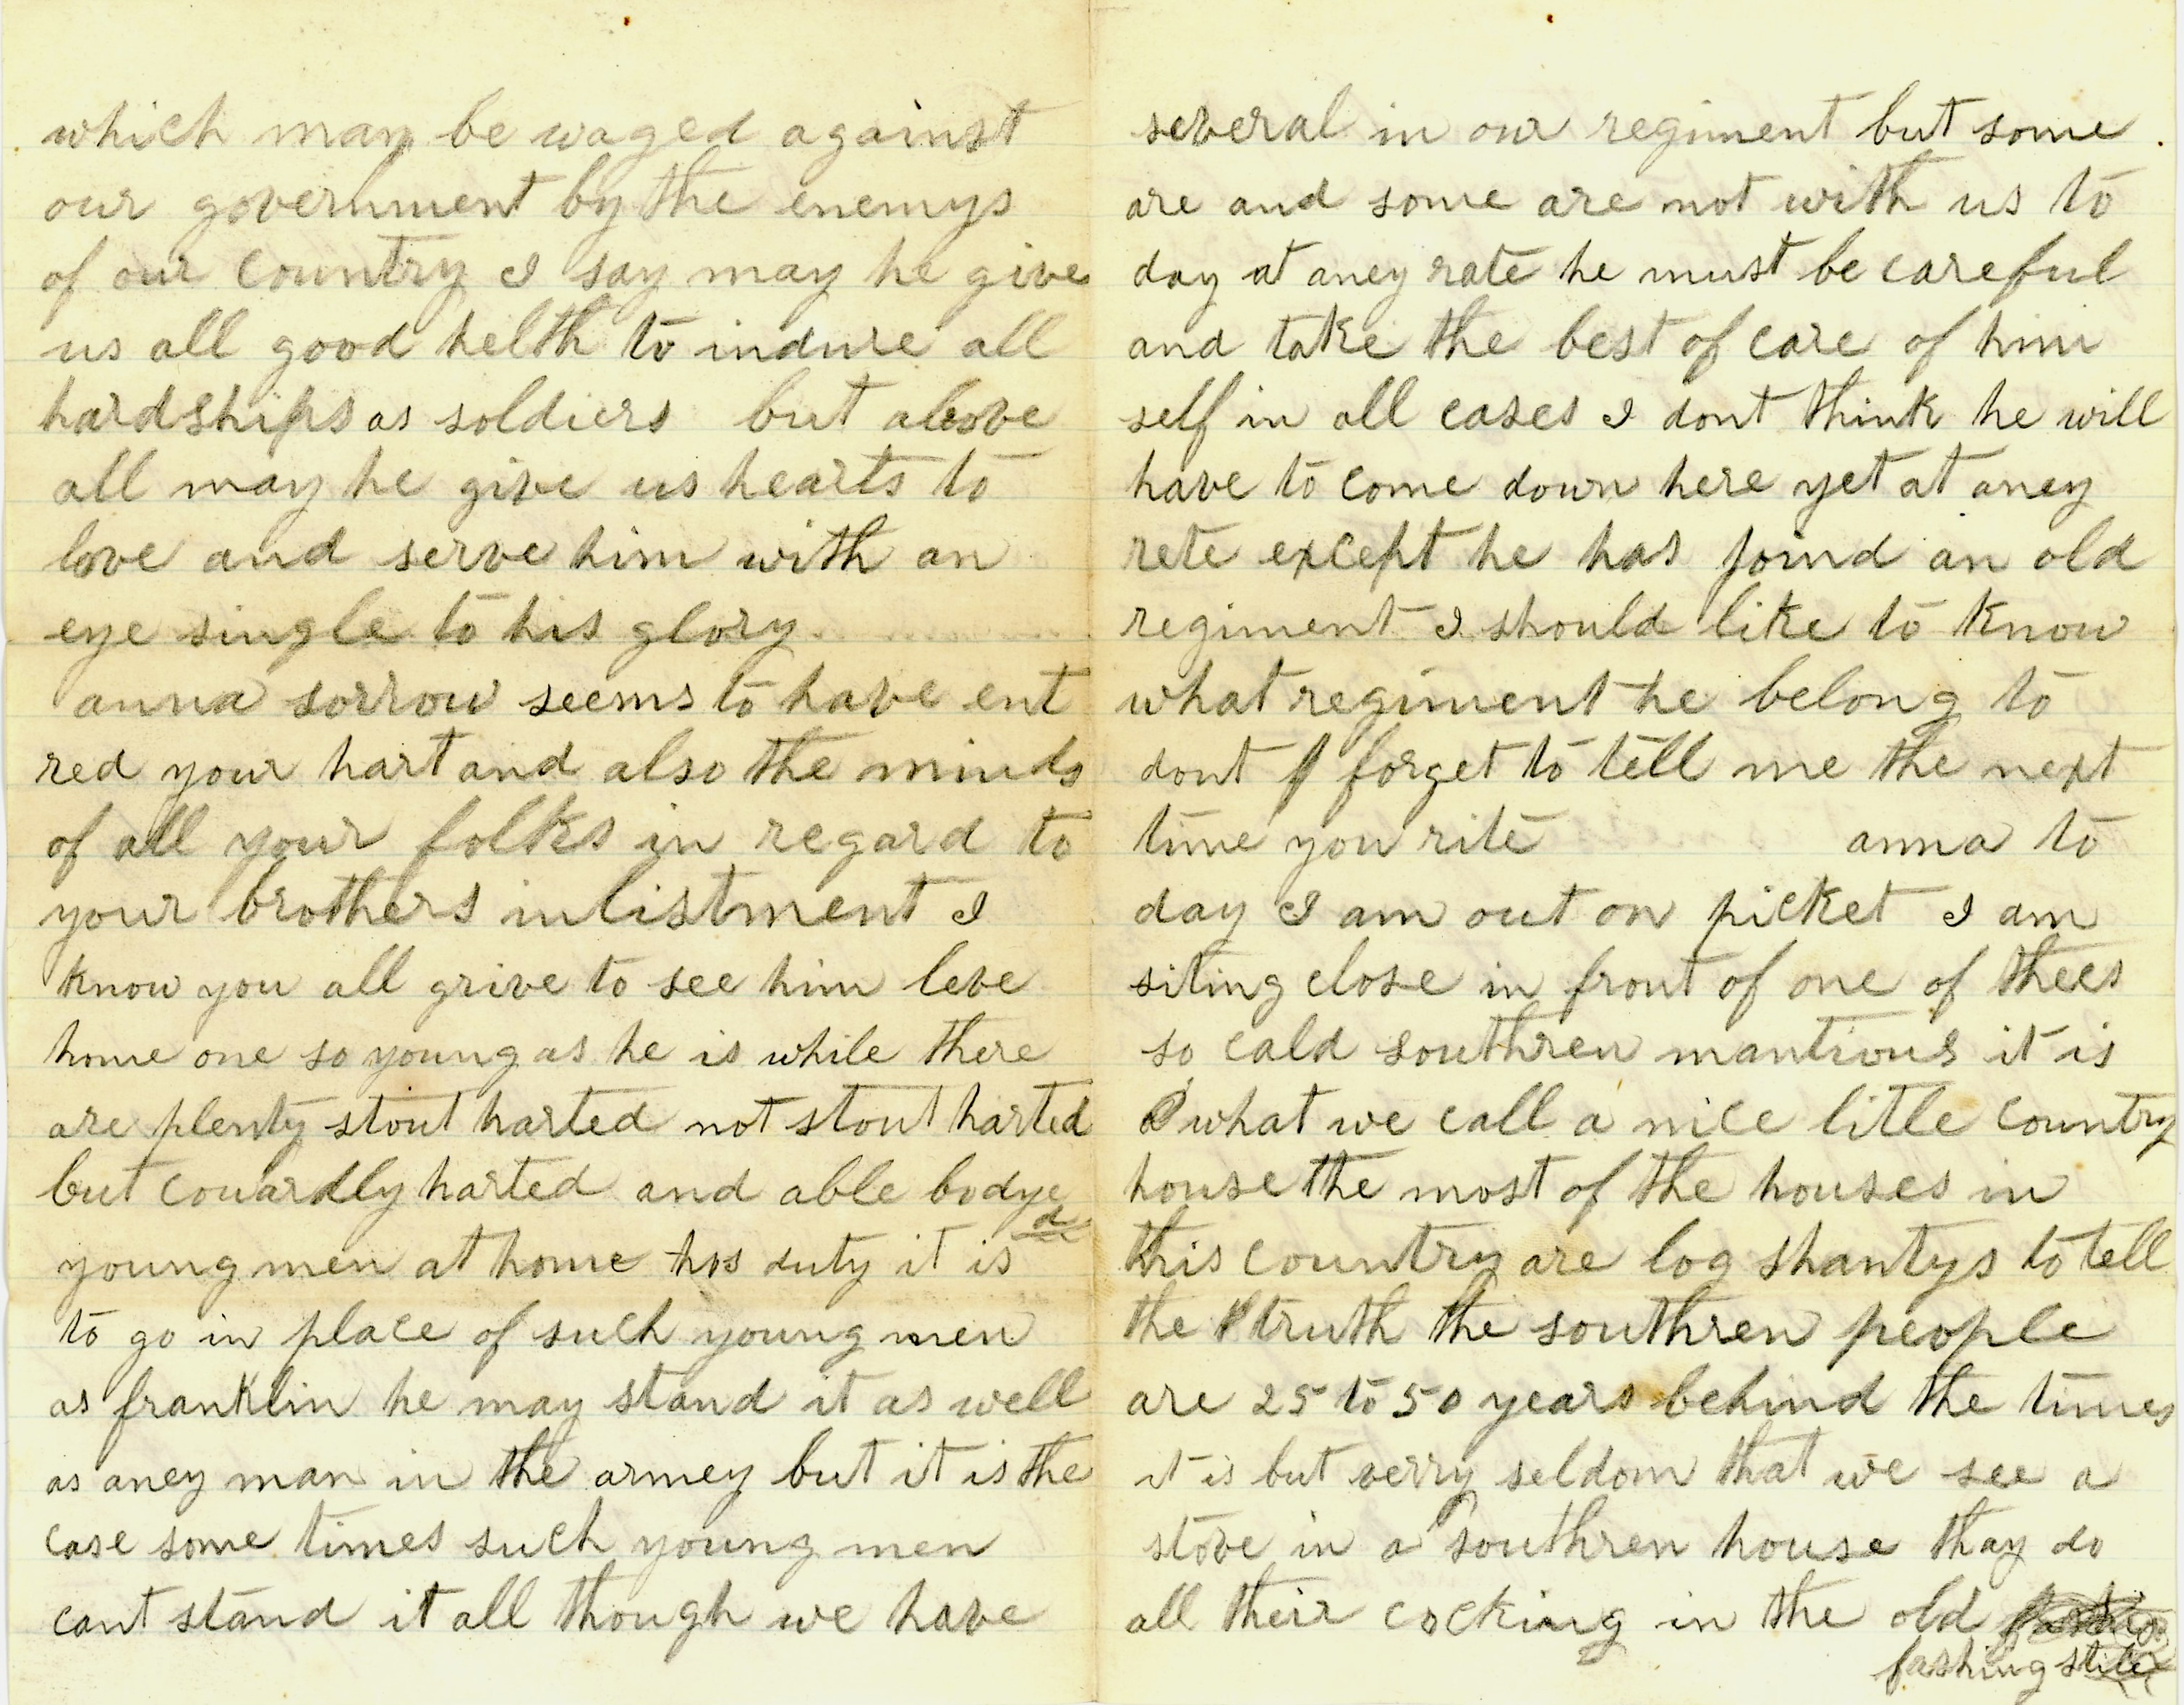 which may be waged against
our government by the enemys
of our country I say may he give
us all good helth to indure all
hardships as soldiers but above
all may he give us hearts to
love and serve him with an
eye single to his glory
anna sorrow seems to have ent
red your hart and also the minds
of all your folks in regard to
your brothers inlistment I
know you all grive to see him leve
home one so young as he is while there
are plenty stout harted not stout harted
but cowardly harted and able bodye
d
young men at home hos duty it is
to go in place of such young men
as franklin he may stand it as well
as aney man in the armey but it is the
case some times such young men
cant stand it all though we have
several in our regiment but some
are and some are not with us to
day at aney rate he must be careful
and take the best of care of him
self in all cases I dont think he will
have to come down here yet at aney
rete except he has joind an old
regiment I should like to know
what regiment he belong to
dont forget to tell me the next
time you rite anna to
day I am out on picket I am
siting close in front of one of thees
so cald southren mantions it is
what we call a nice litle country
house the most of the houses in
this country are log shantys to tell
the truth the southren people
are 25 to 50 years behind the times
it is but verry seldom that we see a
stove in a southren house thay do
all their cocking in the old
fashing stile